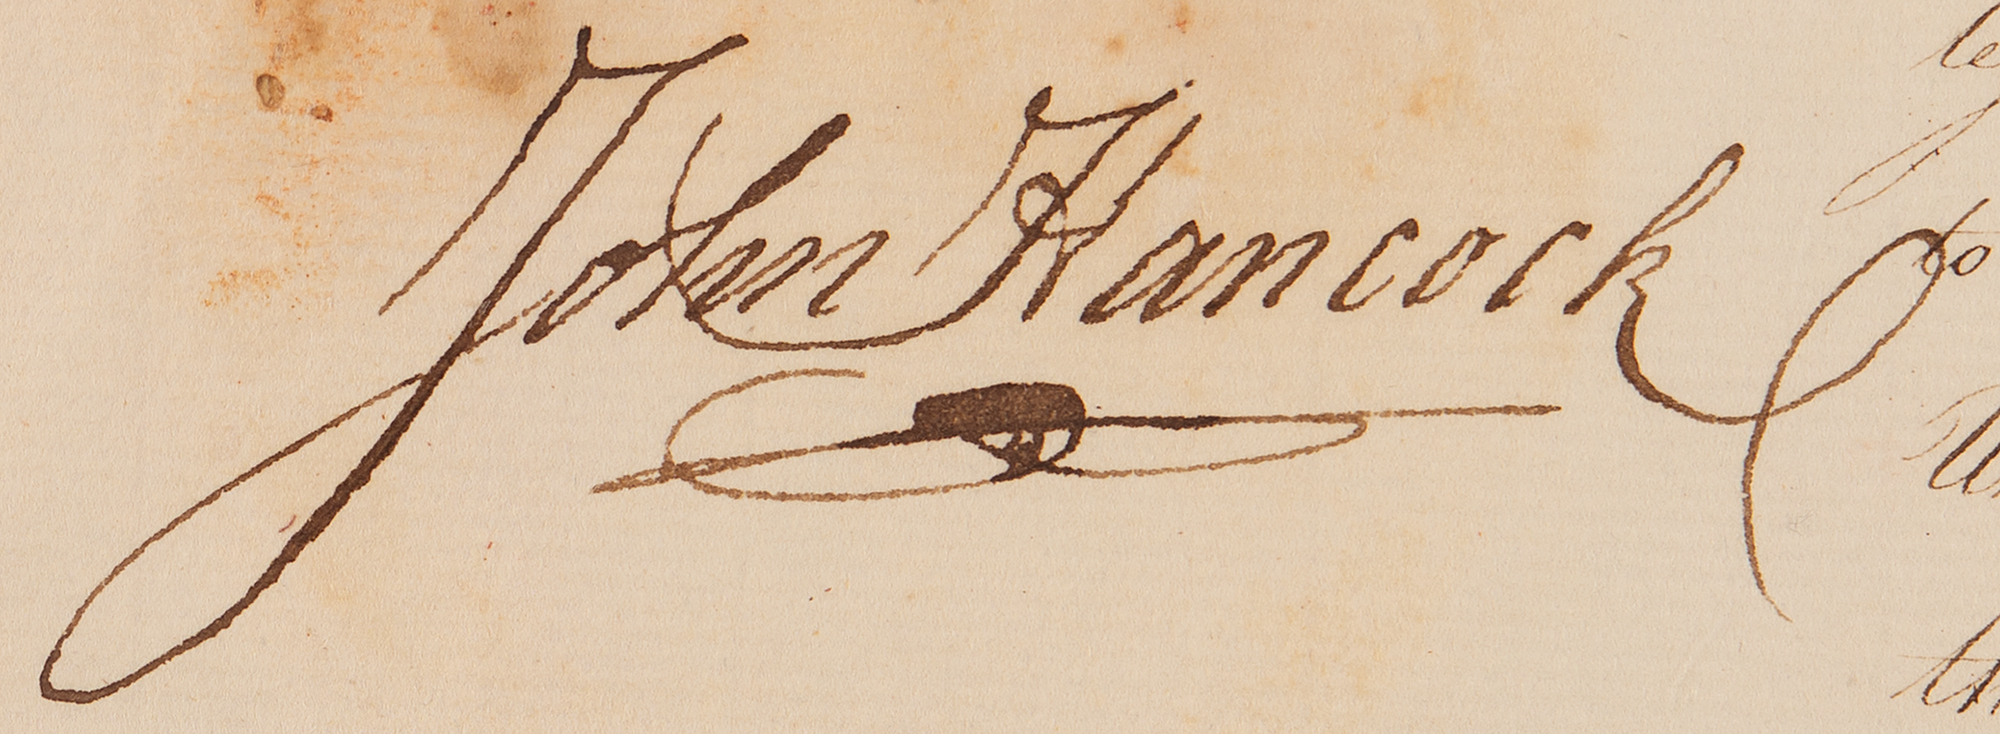 John Hancock
to